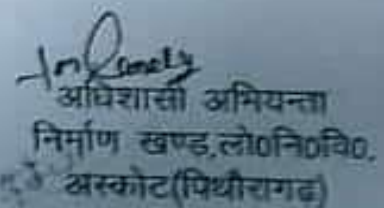 अधिशासी अभियन्ता
निर्माण खण्ड,लो0नि0वि0,
अस्कोट(पिथौरागढ)